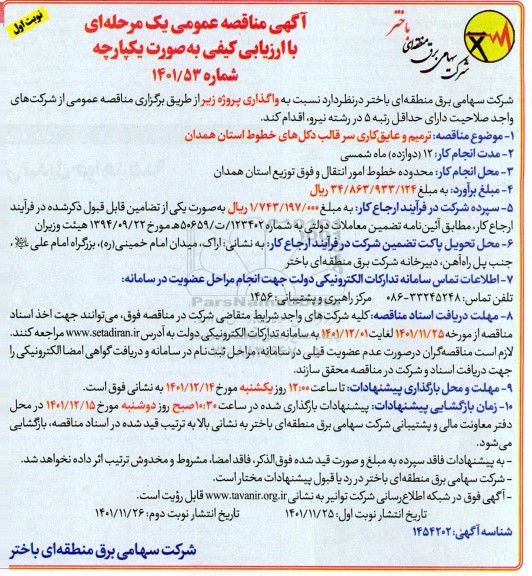 نوبت اول
آگهی مناقصه عمومی یک مرحله‌ای
با ارزیابی کیفی به صورت یکپارچه
شماره ۱۴۰۱/۵۳
شرکت سهامی برق منطقه‌ای باختر
شرکت سهامی برق منطقه‌ای باختر درنظردارد نسبت به واگذاری پروژه زیر از طریق برگزاری مناقصه عمومی از شرکت‌های
واجد صلاحیت دارای حداقل رتبه ۵ در رشته نیرو، اقدام کند.
۱- موضوع مناقصه: ترمیم و عایق‌کاری سر قالب دکل‌های خطوط استان همدان
۲- مدت انجام کار: ۱۲ (دوازده) ماه شمسی
۳- محل انجام کار: محدوده خطوط امور انتقال و فوق توزیع استان همدان
۴- مبلغ برآورد: به مبلغ ۳۴/۸۶۳/۹۳۳/۱۲۴ ریال
۵- سپرده شرکت در فرآیند ارجاع کار: به مبلغ ۱/۷۴۳/۱۹۷/۰۰۰ ریال به‌صورت یکی از تضامین قابل قبول ذکرشده در فرآیند
ارجاع کار، مطابق آئین‌نامه تضمین معاملات دولتی به شماره ۱۲۳۴۰۲/ت۵۰۶۵۹هـ مورخ ۱۳۹۴/۰۹/۲۲ هیئت وزیران
۶- محل تحویل پاکت تضمین شرکت در فرآیند ارجاع کار: به نشانی: اراک، میدان امام خمینی(ره)، بزرگراه امام علی ،
جنب پل راه‌آهن، دبیرخانه شرکت برق منطقه‌ای باختر
۷- اطلاعات تماس سامانه تدارکات الکترونیکی دولت جهت انجام مراحل عضویت در سامانه:
تلفن تماس: ۳۳۲۴۵۲۴۸-۰۸۶ مرکز راهبری و پشتیبانی: ۱۴۵۶
۸- مهلت دریافت اسناد مناقصه: کلیه شرکت‌های واجد شرایط متقاضی شرکت در مناقصه فوق، می‌توانند جهت اخذ اسناد
مناقصه از مورخه ۱۴۰۱/۱۱/۲۵ لغایت ۱۴۰۱/۱۲/۰۱ به سامانه تدارکات الکترونیکی دولت به آدرس www.setadiran.ir مراجعه کنند.
لازم است مناقصه‌گران درصورت عدم عضویت قبلی در سامانه، مراحل ثبت‌نام در سامانه و دریافت گواهی امضا الکترونیکی را
جهت دریافت اسناد و شرکت در مناقصه محقق سازند.
۹- مهلت و محل بارگذاری پیشنهادات: تا ساعت ۱۲:۰۰ روز یکشنبه مورخ ۱۴۰۱/۱۲/۱۴ به نشانی فوق است.
۱۰- زمان بازگشایی پیشنهادات: پیشنهادات بارگذاری شده در ساعت ۱۰:۳۰ صبح روز دوشنبه مورخ ۱۴۰۱/۱۲/۱۵ در محل
دفتر معاونت مالی و پشتیبانی شرکت سهامی برق منطقه‌ای باختر به نشانی بالا به ترتیب قید شده در اسناد مناقصه، بازگشایی
می‌شود.
- به پیشنهادات فاقد سپرده به مبلغ و صورت قید شده فوق‌الذکر، فاقد امضا، مشروط و مخدوش ترتیب اثر داده نخواهد شد.
- شرکت سهامی برق منطقه‌ای باختر در رد یا قبول پیشنهادات مختار است.
- آگهی فوق در شبکه اطلاع‌رسانی شرکت توانیر به نشانی www.tavanir.org.ir قابل رؤیت است.
تاریخ انتشار نوبت اول: ۱۴۰۱/۱۱/۲۵ تاریخ انتشار نوبت دوم: ۱۴۰۱/۱۱/۲۶
شناسه آگهی: ۱۴۵۴۲۰۲
شرکت سهامی برق منطقه‌ای باختر